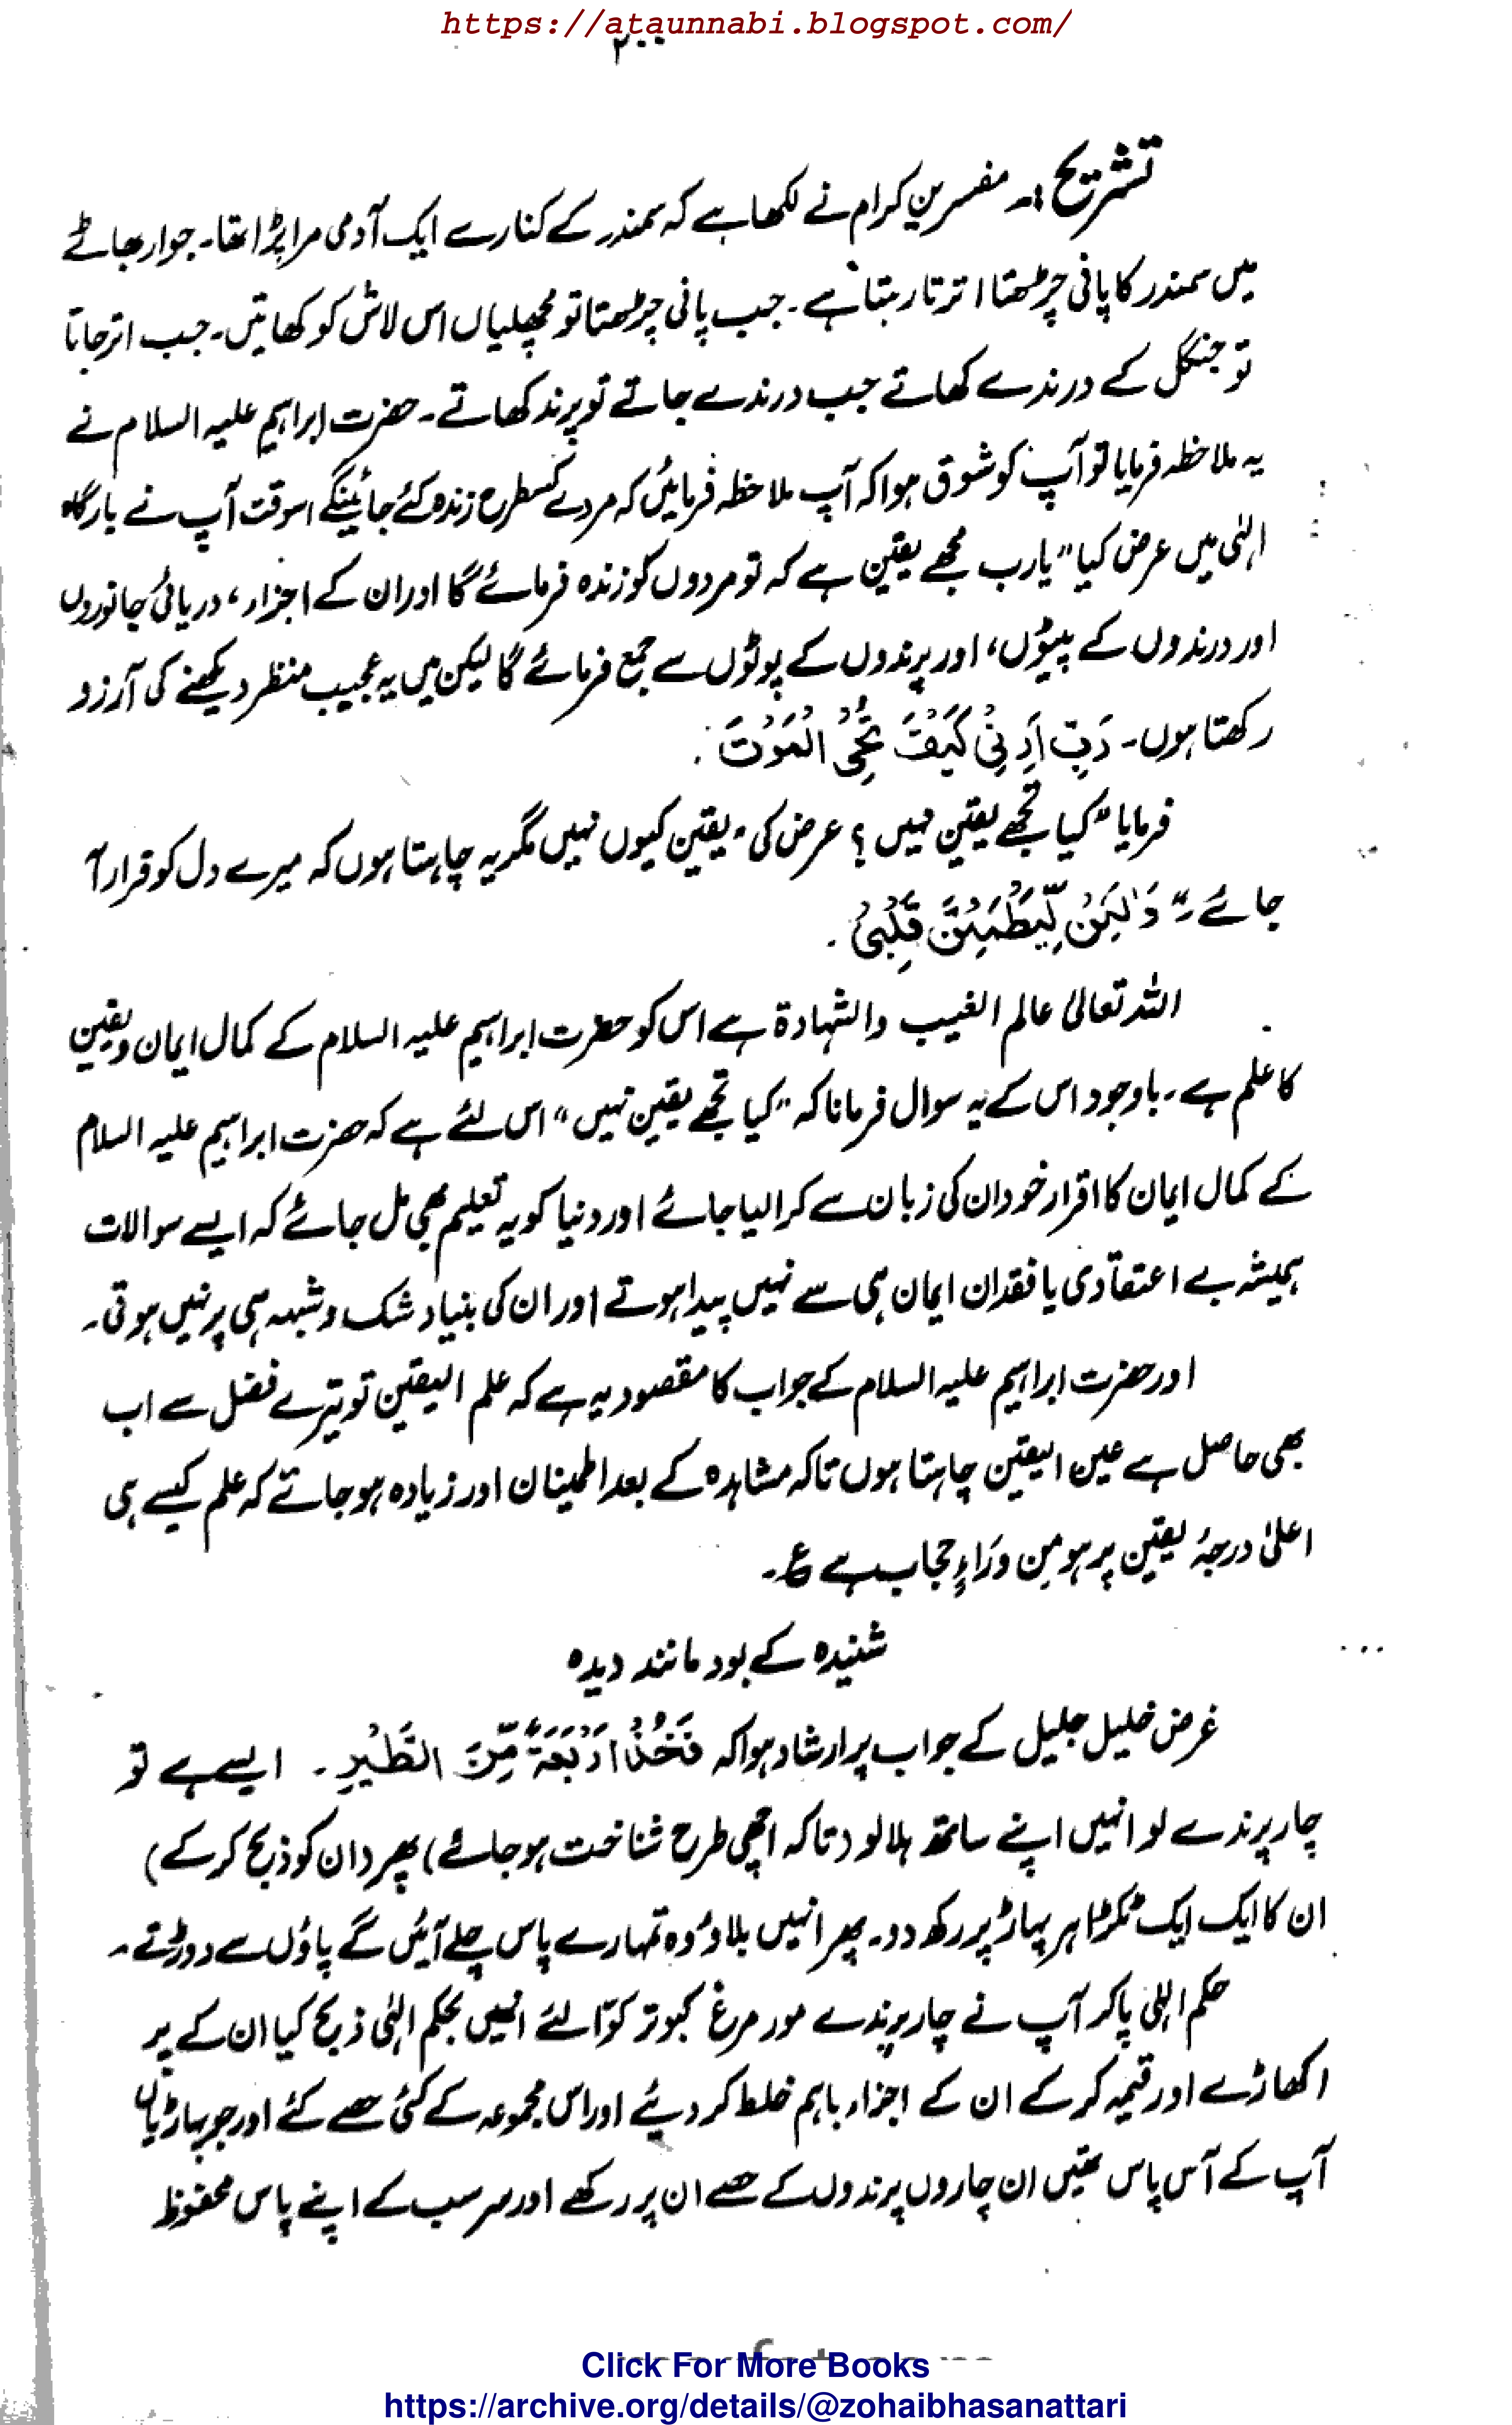 https://ataunnabi.blogspot.com/
۲۰۰
تشریح :۔ مفسرین کرام نے لکھا ہے کہ سمندر کے کنارے ایک آدمی مرا پڑا تھا۔ جوار بھاٹے
میں سمندر کا پانی چڑھتا اترتا رہتا ہے۔ جب پانی چڑھتا تو مچھلیاں اس لاش کو کھاتیں۔ جب اتر جاتا
تو جنگل کے درندے کھاتے جب درندے جاتے تو پرند کھاتے۔ حضرت ابراہیم علیہ السلام نے
یہ ملاحظہ فرمایا تو آپ کو شوق ہوا کہ آپ ملاحظہ فرمائیں کہ مردے کسطرح زندہ کئے جائینگے اسوقت آپ نے بارگاہ
الٰہی میں عرض کیا "یا رب مجھے یقین ہے کہ تو مردوں کو زندہ فرمائے گا اور ان کے اجزاء، دریائی جانوروں
اور درندوں کے پیٹوں، اور پرندوں کے پوٹوں سے جمع فرمائے گا لیکن میں یہ عجیب منظر دیکھنے کی آرزو
رکھتا ہوں۔ رَبِّ اَرِنِیْ کَیْفَ تُحْیِ الْمَوْتٰی۔
فرمایا "کیا تجھے یقین نہیں؟ عرض کی "یقین کیوں نہیں مگر یہ چاہتا ہوں کہ میرے دل کو قرار آ
جائے"۔ وَلٰکِنْ لِّیَطْمَئِنَّ قَلْبِیْ۔
اللہ تعالیٰ عالم الغیب والشہادۃ ہے اس کو حضرت ابراہیم علیہ السلام کے کمال ایمان و یقین
کا علم ہے۔ باوجود اس کے یہ سوال فرمانا کہ "کیا تجھے یقین نہیں" اس لئے ہے کہ حضرت ابراہیم علیہ السلام
کے کمال ایمان کا اقرار خود ان کی زبان سے کرا لیا جائے اور دنیا کو یہ تعلیم بھی مل جائے کہ ایسے سوالات
ہمیشہ بے اعتقادی یا فقدان ایمان ہی سے نہیں پیدا ہوتے اور ان کی بنیاد شک و شبہہ ہی پر نہیں ہوتی۔
اور حضرت ابراہیم علیہ السلام کے جواب کا مقصود یہ ہے کہ علم الیقین تو تیرے فضل سے اب
بھی حاصل ہے عین الیقین چاہتا ہوں تاکہ مشاہدہ کے بعد اطمینان اور زیادہ ہو جائے کہ علم کیسے ہی
اعلیٰ درجۂ یقین پر ہو مِن وَراءِ حجاب ہے ع۔
شنیدہ کے بود مانند دیدہ
غرض خلیل جلیل کے جواب پر ارشاد ہوا کہ فَخُذْ اَرْبَعَةً مِّنَ الطَّیْرِ۔ ایسے ہے تو
چار پرندے لو انہیں اپنے ساتھ ہلا لو (تاکہ اچھی طرح شناخت ہو جائے) پھر (ان کو ذبح کر کے)
ان کا ایک ایک ٹکڑا ہر پہاڑ پر رکھ دو۔ پھر انہیں بلاؤ وہ تمہارے پاس چلے آئیں گے پاؤں سے دوڑتے۔
حکم الٰہی پا کر آپ نے چار پرندے مور مرغ کبوتر کوّا لئے انہیں بحکم الٰہی ذبح کیا ان کے پر
اکھاڑے اور قیمہ کر کے ان کے اجزاء باہم خلط کر دیئے اور اس مجموعہ کے کئی حصے کئے اور جو پہاڑیاں
آپ کے آس پاس تھیں ان چاروں پرندوں کے حصے ان پر رکھے اور سر سب کے اپنے پاس محفوظ
Click For More Books
https://archive.org/details/@zohaibhasanattari